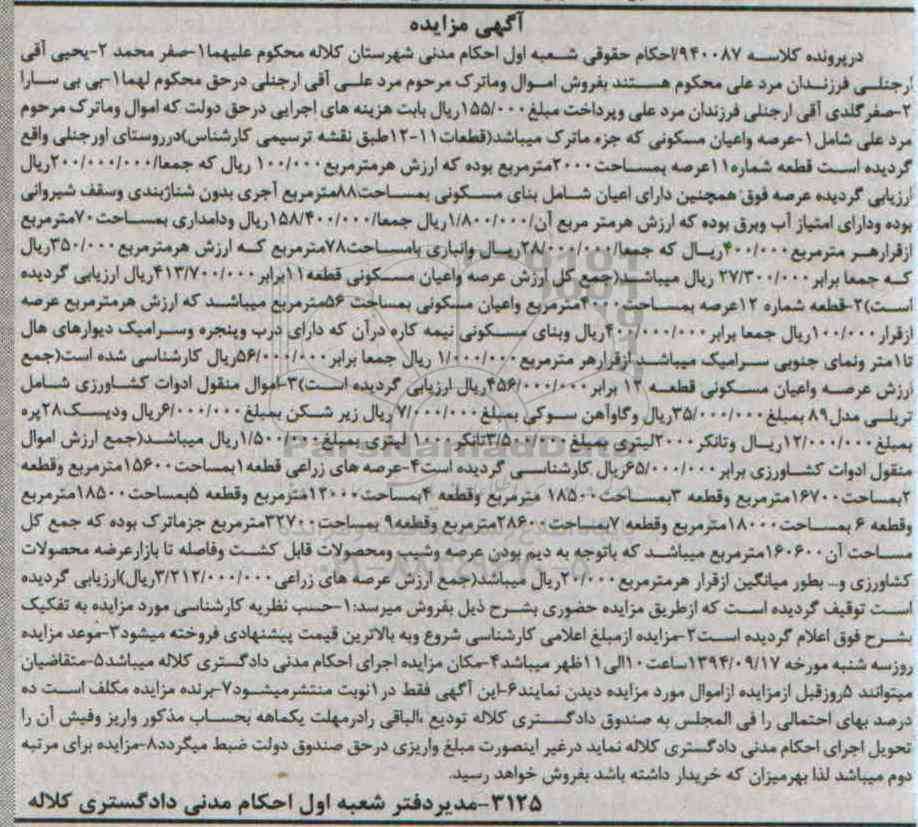 آگهی مزایده
درپرونده کلاسه ۹۴۰۰۸۷/احکام حقوقی شعبه اول احکام مدنی شهرستان کلاله محکوم علیهما۱-صفر محمد ۲-یحیی آقی
ارجنلی فرزندان مرد علی محکوم هستند بفروش اموال وماترک مرحوم مرد علی آقی ارجنلی درحق محکوم لهما۱-بی بی سارا
۲-صفرگلدی آقی ارجنلی فرزندان مرد علی وپرداخت مبلغ۱۵۵/۰۰۰ریال بابت هزینه های اجرایی درحق دولت که اموال وماترک مرحوم
مرد علی شامل۱-عرصه واعیان مسکونی که جزء ماترک میباشد(قطعات۱۱-۱۲طبق نقشه ترسیمی کارشناس)درروستای اورجنلی واقع
گردیده است قطعه شماره۱۱عرصه بمساحت۲۰۰۰مترمربع بوده که ارزش هرمترمربع ۱۰۰/۰۰۰ ریال که جمعا/۲۰۰/۰۰۰/۰۰۰ریال
ارزیابی گردیده عرصه فوق همچنین دارای اعیان شامل بنای مسکونی بمساحت۸۸مترمربع آجری بدون شناژبندی وسقف شیروانی
بوده ودارای امتیاز آب وبرق بوده که ارزش هرمتر مربع آن/۱/۸۰۰/۰۰۰ریال جمعا/۱۵۸/۴۰۰/۰۰۰ریال ودامداری بمساحت۷۰مترمربع
ازقرارهر مترمربع۴۰۰/۰۰۰ریال که جمعا/۲۸/۰۰۰/۰۰۰ریال وانباری بامساحت۷۸مترمربع که ارزش هرمترمربع۳۵۰/۰۰۰ریال
که جمعا برابر۲۷/۳۰۰/۰۰۰ ریال میباشد(جمع کل ارزش عرصه واعیان مسکونی قطعه۱۱برابر۴۱۳/۷۰۰/۰۰۰ریال ارزیابی گردیده
است)۲-قطعه شماره ۱۲عرصه بمساحت۴۰۰۰مترمربع واعیان مسکونی بمساحت ۵۶مترمربع میباشد که ارزش هرمترمربع عرصه
ازقرار۱۰۰/۰۰۰ریال جمعا برابر۴۰۰/۰۰۰/۰۰۰ریال وبنای مسکونی نیمه کاره درآن که دارای درب وپنجره وسرامیک دیوارهای هال
تا۱متر ونمای جنوبی سرامیک میباشد ازقرارهر مترمربع۱/۰۰۰/۰۰۰ ریال جمعا برابر۵۶/۰۰۰/۰۰۰ریال کارشناسی شده است(جمع
ارزش عرصه واعیان مسکونی قطعه ۱۲ برابر۴۵۶/۰۰۰/۰۰۰ریال ارزیابی گردیده است)۳-اموال منقول ادوات کشاورزی شامل
تریلی مدل۸۹ بمبلغ۳۵/۰۰۰/۰۰۰ریال وگاوآهن سوکی بمبلغ۷/۰۰۰/۰۰۰ریال زیر شکن بمبلغ۶/۰۰۰/۰۰۰ریال ودیسک۲۸پره
بمبلغ۱۲/۰۰۰/۰۰۰ریال وتانکر۲۰۰۰لیتری بمبلغ۳/۵۰۰/۰۰۰تانکر۱۰۰۰ لیتری بمبلغ۱/۵۰۰/۰۰۰ریال میباشد(جمع ارزش اموال
منقول ادوات کشاورزی برابر۶۵/۰۰۰/۰۰۰ریال کارشناسی گردیده است۴-عرصه های زراعی قطعه۱بمساحت۱۵۶۰۰مترمربع وقطعه
۲بمساحت۱۶۷۰۰مترمربع وقطعه ۳بمساحت۱۸۵۰۰ مترمربع وقطعه ۴بمساحت۱۲۰۰۰مترمربع وقطعه ۵بمساحت۱۸۵۰۰مترمربع
وقطعه ۶ بمساحت۱۸۰۰۰مترمربع وقطعه ۷بمساحت۲۸۶۰۰مترمربع وقطعه۹ بمساحت۳۲۷۰۰مترمربع جزماترک بوده که جمع کل
مساحت آن۱۶۰۶۰۰مترمربع میباشد که باتوجه به دیم بودن عرصه وشیب ومحصولات قابل کشت وفاصله تا بازارعرضه محصولات
کشاورزی و... بطور میانگین ازقرار هرمترمربع۲۰/۰۰۰ریال میباشد(جمع ارزش عرصه های زراعی۳/۲۱۲/۰۰۰/۰۰۰ریال)ارزیابی گردیده
است توقیف گردیده است که ازطریق مزایده حضوری بشرح ذیل بفروش میرسد:۱-حسب نظریه کارشناسی مورد مزایده به تفکیک
بشرح فوق اعلام گردیده است۲-مزایده ازمبلغ اعلامی کارشناسی شروع وبه بالاترین قیمت پیشنهادی فروخته میشود۳-موعد مزایده
روزسه شنبه مورخه ۱۳۹۴/۰۹/۱۷ساعت۱۰الی۱۱ظهر میباشد۴-مکان مزایده اجرای احکام مدنی دادگستری کلاله میباشد۵-متقاضیان
میتوانند ۵روزقبل ازمزایده ازاموال مورد مزایده دیدن نمایند۶-این آگهی فقط در۱نوبت منتشرمیشود۷-برنده مزایده مکلف است ده
درصد بهای احتمالی را فی المجلس به صندوق دادگستری کلاله تودیع ،الباقی رادرمهلت یکماهه بحساب مذکور واریز وفیش آن را
تحویل اجرای احکام مدنی دادگستری کلاله نماید درغیر اینصورت مبلغ واریزی درحق صندوق دولت ضبط میگردد۸-مزایده برای مرتبه
دوم میباشد لذا بهرمیزان که خریدار داشته باشد بفروش خواهد رسید.
۳۱۲۵-مدیردفتر شعبه اول احکام مدنی دادگستری کلاله
ParsNamadData